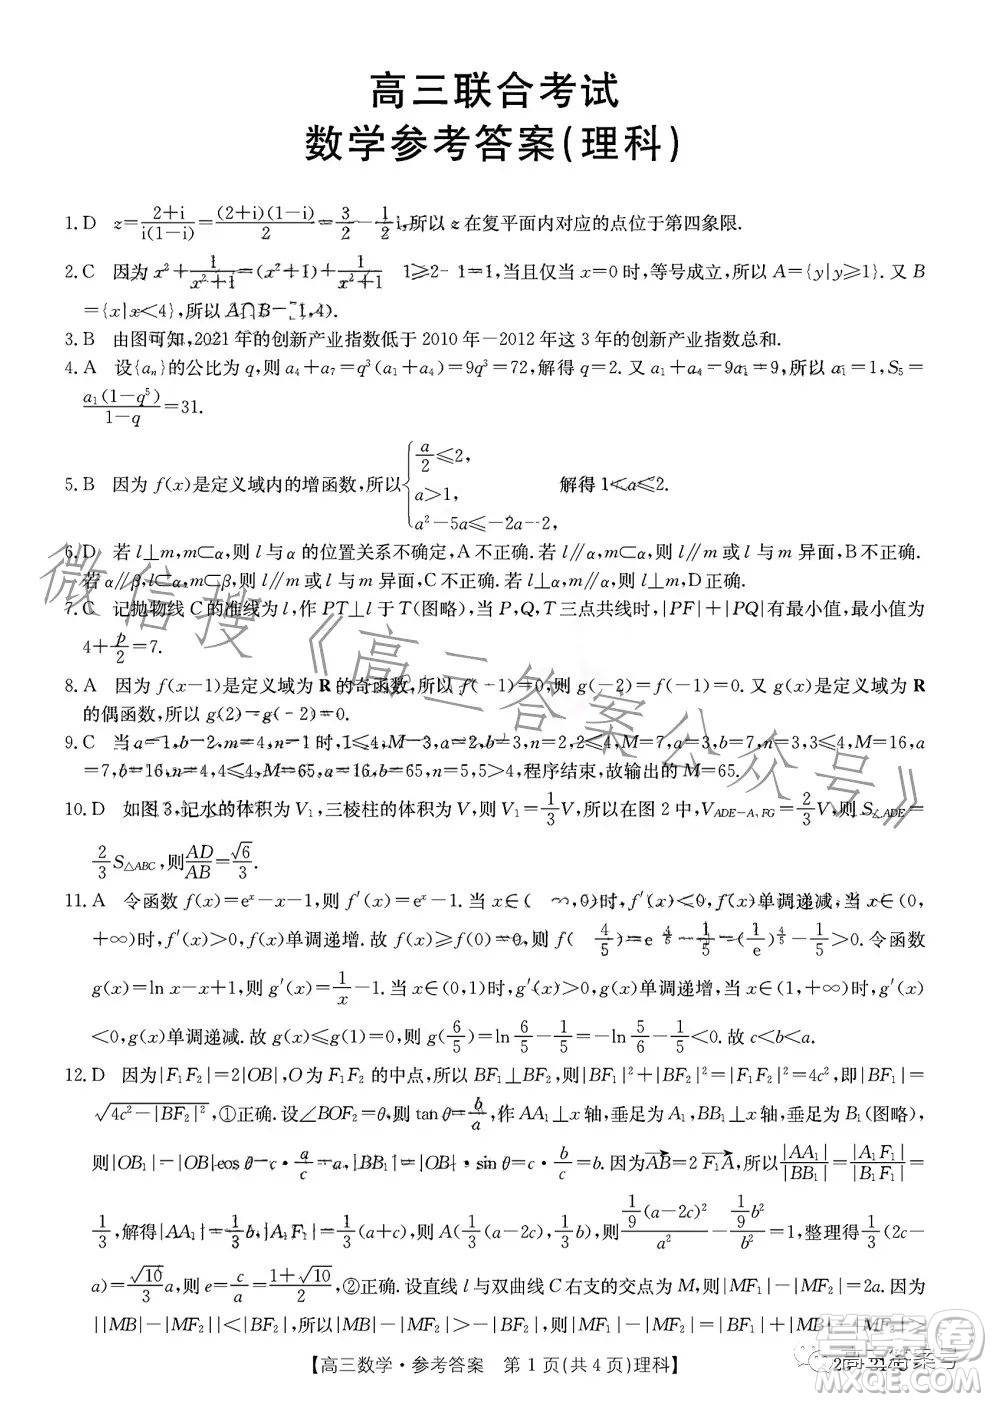 高三联合考试
数学参考答案(理科)
1. D z=(2+i)/(i(1-i))=((2+i)(1-i))/2=3/2-1/2i,所以 z 在复平面内对应的点位于第四象限.
2. C 因为 x²+1/(x²+1)=(x²+1)+1/(x²+1) 1≥2-1=1,当且仅当 x=0 时,等号成立,所以 A={y|y≥1}. 又 B
={x|x<4},所以 A∩B=[1,4).
3. B 由图可知,2021 年的创新产业指数低于 2010 年—2012 年这 3 年的创新产业指数总和.
4. A 设{aₙ}的公比为 q,则 a₄+a₇=q³(a₁+a₄)=9q³=72,解得 q=2. 又 a₁+a₄=9a₁=9,所以 a₁=1,S₅=
a₁(1-q⁵)/(1-q)=31.
5. B 因为 f(x)是定义域内的增函数,所以{ a/2≤2, a>1, a²-5a≤-2a-2, 解得 1<a≤2.
6. D 若 l⊥m,m⊂α,则 l 与 α 的位置关系不确定,A 不正确. 若 l∥α,m⊂α,则 l∥m 或 l 与 m 异面,B 不正确.
若 α∥β,l⊂α,m⊂β,则 l∥m 或 l 与 m 异面,C 不正确.
7. C 记抛物线 C 的准线为 l,作 PT⊥l 于 T(图略),当 P,Q,T 三点共线时,|PF|+|PQ|有最小值,最小值为
4+p/2=7.
8. A 因为 f(x-1)是定义域为 R 的奇函数,所以 f(-1)=0,则 g(-2)=f(-1)=0. 又 g(x)是定义域为 R
的偶函数,所以 g(2)=g(-2)=0.
9. C 当 a=1,b=2,m=4,n=1 时,1≤4,M=3,a=2,b=3,n=2,2≤4,M=7,a=3,b=7,n=3,3≤4,M=16,a
=7,b=16,n=4,4≤4,M=65,a=16,b=65,n=5,5>4,程序结束,故输出的 M=65.
10. D 如图 3,记水的体积为 V₁,三棱柱的体积为 V,则 V₁=1/3V,所以在图 2 中,V_{ADE-A₁FG}=2/3V,则 S_{△ADE}=
2/3S_{△ABC},则AD/AB=√6/3.
11. A 令函数 f(x)=eˣ-x-1,则 f′(x)=eˣ-1. 当 x∈(-∞,0)时,f′(x)<0,f(x)单调递减,当 x∈(0,
+∞)时,f′(x)>0,f(x)单调递增. 故 f(x)≥f(0)=0,则 f(-4/5)=e^{-4/5}-1/5=(1/e)^{4/5}-1/5>0. 令函数
g(x)=ln x-x+1,则 g′(x)=1/x-1. 当 x∈(0,1)时,g′(x)>0,g(x)单调递增,当 x∈(1,+∞)时,g′(x)
<0,g(x)单调递减. 故 g(x)≤g(1)=0,则 g(6/5)=ln 6/5-1/5=-ln 5/6-1/5<0. 故 c<b<a.
12. D 因为|F₁F₂|=2|OB|,O 为 F₁F₂ 的中点,所以 BF₁⊥BF₂,所以|BF₁|²+|BF₂|²=4c²,即|BF₁|=
√(4c²-|BF₂|²),①正确. 设∠BOF₂=θ,则 tan θ=b/a,作 AA₁⊥x 轴,垂足为 A₁,BB₁⊥x 轴,垂足为 B₁(图略),
则|OB₁|=|OB|cos θ=c·a/c=a,|BB₁|=|OB|·sin θ=c·b/c=b. 因为AB→=2F₁A→,所以|AA₁|/|BB₁|=|A₁F₁|/|B₁F₁|=
1/3,解得|AA₁|=1/3b,|A₁F₁|=1/3(a+c),则 A(1/3(a-2c),1/3b),则 1/9(a-2c)²/a²-1/9b²/b²=1,整理得1/3(2c-
a)=√10/3a,则 e=c/a=(1+√10)/2,②正确. 设直线 l 与双曲线 C 右支的交点为 M,则|MF₁|-|MF₂|=2a. 因为
||MB|-|MF₂||<|BF₂|,所以|MB|-|MF₂|>-|BF₂|,则|MF₁|-|MF₂|=|BF₁|+|MB|-|MF₂|>
【高三数学·参考答案 第 1 页(共 4 页)理科】
微信搜《高三答案公众号》
答案圈